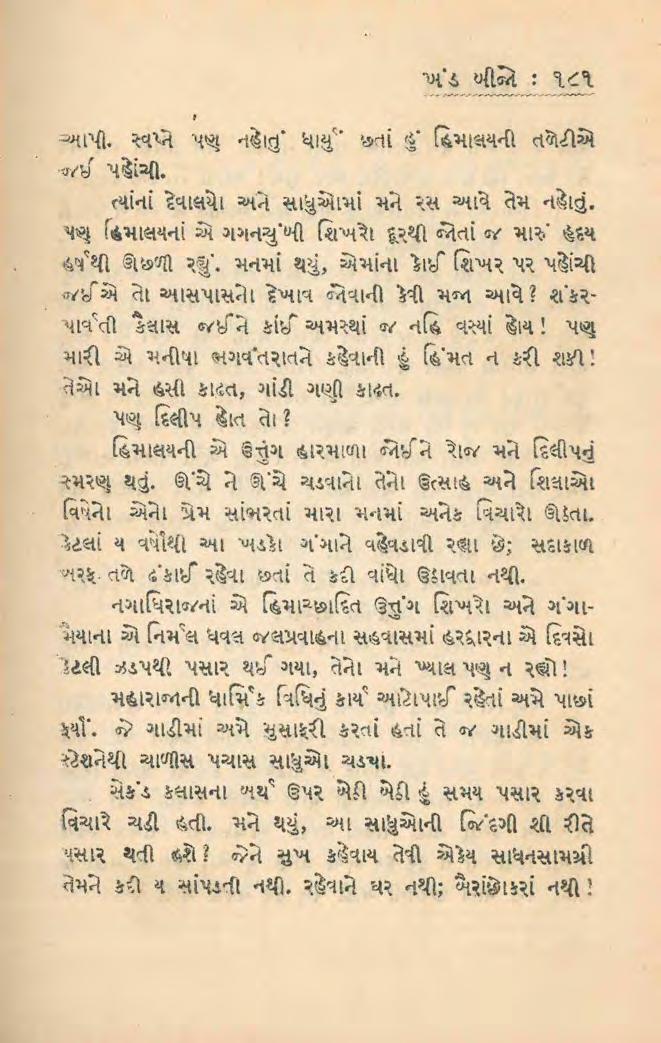 ખંડ બીજો : ૧૮૧
આપી. સ્વપ્ને પણ નહોતું ધાર્યું છતાં હું હિમાલયની તળેટીએ
જઈ પહોંચી.
ત્યાંનાં દેવાલયો અને સાધુઓમાં મને રસ આવે તેમ નહોતું.
પણ હિમાલયનાં એ ગગનચુંબી શિખરો દૂરથી જોતાં જ મારું હૃદય
હર્ષથી ઊછળી રહ્યું. મનમાં થયું, એમાંના કોઈ શિખર પર પહોંચી
જઈએ તો આસપાસનો દેખાવ જોવાની કેવી મજા આવે? શંકર-
પાર્વતી કૈલાસ જઈને કાંઈ અમસ્થાં જ નહિ વસ્યાં હોય! પણ
મારી એ મનીષા ભગવંતરાતને કહેવાની હું હિંમત ન કરી શકી!
તેઓ મને હસી કાઢત, ગાંડી ગણી કાઢત.
પણ દિલીપ હોત તો?
હિમાલયની એ ઉત્તુંગ હારમાળા જોઈને રોજ મને દિલીપનું
સ્મરણ થતું. ઊંચે ને ઊંચે ચડવાનો તેનો ઉત્સાહ અને શિલાઓ
વિષેનો એનો પ્રેમ સાંભરતાં મારા મનમાં અનેક વિચારો ઊઠતા.
કેટલાં ય વર્ષોથી આ ખડકો ગંગાને વહેવડાવી રહ્યા છે; સદાકાળ
બરફ તળે ઢંકાઈ રહેવા છતાં તે કદી વાંધો ઉઠાવતા નથી.
નગાધિરાજનાં એ હિમાચ્છાદિત ઉત્તુંગ શિખરો અને ગંગા-
મૈયાના એ નિર્મલ ધવલ જલપ્રવાહના સહવાસમાં હરદ્વારના એ દિવસો
કેટલી ઝડપથી પસાર થઈ ગયા, તેનો મને ખ્યાલ પણ ન રહ્યો!
મહારાજાની ધાર્મિક વિધિનું કાર્ય આટોપાઈ રહેતાં અમે પાછાં
ફર્યાં. જે ગાડીમાં અમે મુસાફરી કરતાં હતાં તે જ ગાડીમાં એક
સ્ટેશનેથી ચાળીસ પચાસ સાધુઓ ચડ્યા.
સેકંડ ક્લાસના બર્થ ઉપર બેઠી બેઠી હું સમય પસાર કરવા
વિચારે ચડી હતી. મને થયું, આ સાધુઓની જિંદગી શી રીતે
પસાર થતી હશે? જેને સુખ કહેવાય તેવી એકેય સાધનસામગ્રી
તેમને કદી ય સાંપડતી નથી. રહેવાને ઘર નથી; બૈરાંછોકરાં નથી!